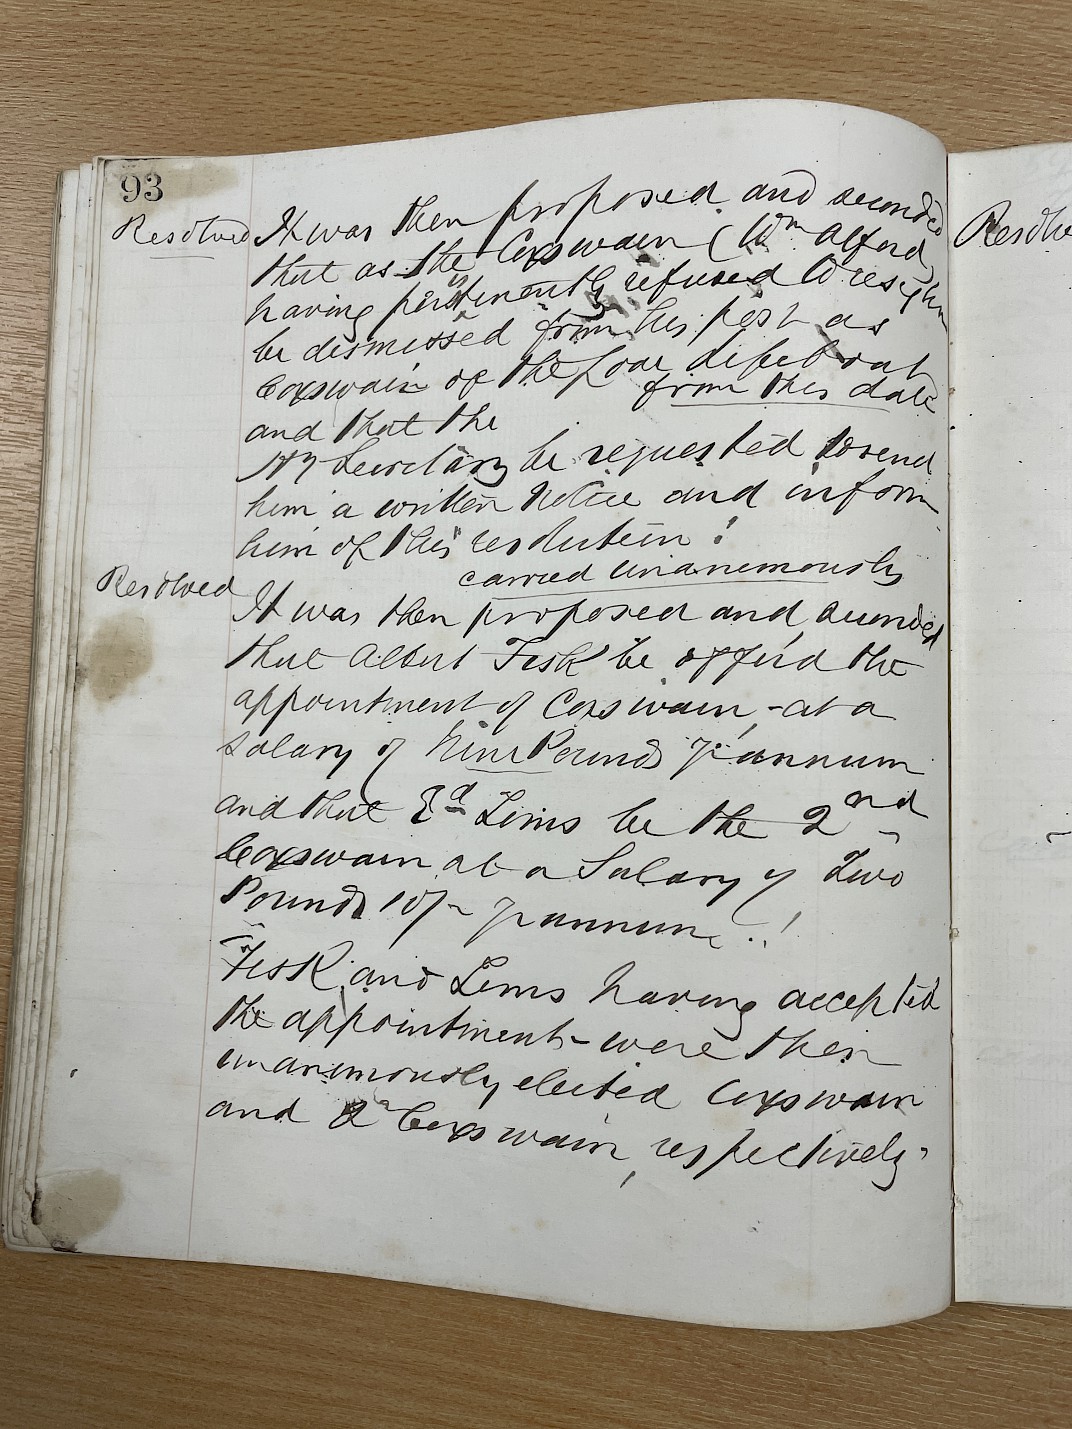 93
Resolved It was then proposed and seconded
that as the Coxswain (Wm Alford)
having persistently refused to resign
be dismissed from his post as
Coxswain of the Lifeboat
from this date
and that the
Hy Secretary be requested to send
him a written Notice and inform
him of this resolution!
carried unanimously
Resolved It was then proposed and seconded
that Albert Fisk be offer'd the
appointment of Coxswain, - at a
Salary of Nine Pounds Pr annum
and that Ed Lims be the 2nd
Coxswain at a Salary of Two
Pounds 10/- Pr annum..!
Fisk and Lims having accepted
the appointment - were then
unanimously elected Coxswain
and 2n Coxswain, respectively.
Resolv